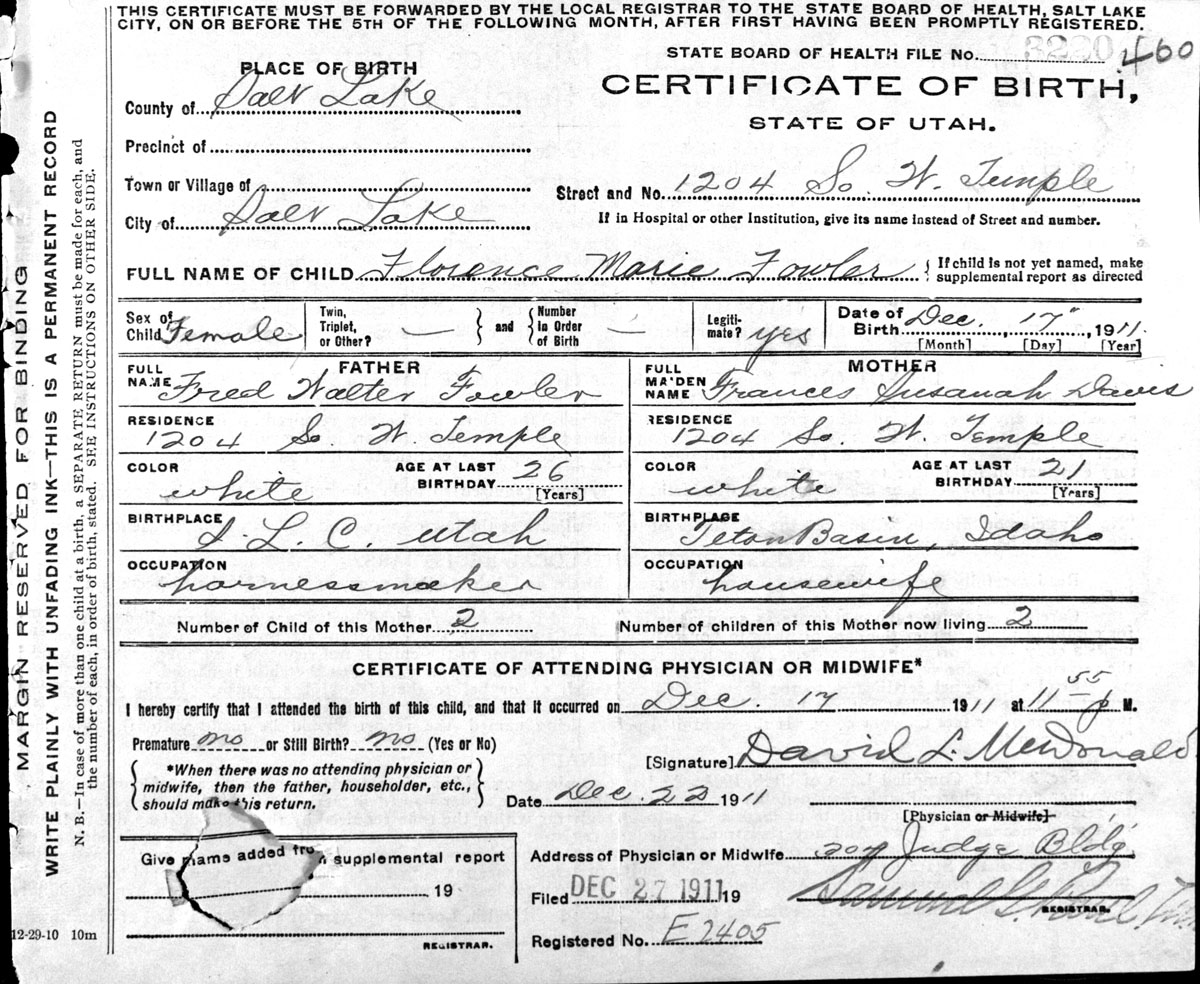 THIS CERTIFICATE MUST BE FORWARDED BY THE LOCAL REGISTRAR TO THE STATE BOARD OF HEALTH, SALT LAKE
CITY, ON OR BEFORE THE 5TH OF THE FOLLOWING MONTH, AFTER FIRST HAVING BEEN PROMPTLY REGISTERED.
STATE BOARD OF HEALTH FILE No. 460
PLACE OF BIRTH
CERTIFICATE OF BIRTH,
STATE OF UTAH.
County of Salt Lake
Precinct of
Town or Village of
Street and No. 1204 So. W. Temple
City of Salt Lake
If in Hospital or other Institution, give its name instead of Street and number.
FULL NAME OF CHILD Florence Marie Fowler { If child is not yet named, make
supplemental report as directed
Sex of Child Female
Twin, Triplet, or Other? —
and
Number in Order of Birth —
Legiti-mate? yes
Date of Birth Dec. 17, 1911.
[Month] [Day] [Year]
FATHER
FULL NAME Fred Walter Fowler
RESIDENCE
1204 So W. Temple
COLOR white
AGE AT LAST BIRTHDAY 26
[Years]
BIRTHPLACE
S. L. C. Utah
OCCUPATION
harnessmaker
MOTHER
FULL MAIDEN NAME Frances Susanah Davis
RESIDENCE
1204 So. W. Temple
COLOR white
AGE AT LAST BIRTHDAY 21
[Years]
BIRTHPLACE
Teton Basin, Idaho
OCCUPATION
housewife
Number of Child of this Mother 2
Number of children of this Mother now living 2
CERTIFICATE OF ATTENDING PHYSICIAN OR MIDWIFE*
I hereby certify that I attended the birth of this child, and that it occurred on Dec. 17 1911 at 11 55 p M.
Premature no or Still Birth? no (Yes or No)
[Signature] David L. McDonald
*When there was no attending physician or
midwife, then the father, householder, etc.,
should make this return.
Date Dec. 22 1911
[Physician or Midwife]
Give name added from supplemental report
19
REGISTRAR.
Address of Physician or Midwife 207 Judge Bldg.
Filed DEC 27 1911 19
REGISTRAR.
Registered No. E 2405
12-29-10 10m
MARGIN RESERVED FOR BINDING
WRITE PLAINLY WITH UNFADING INK—THIS IS A PERMANENT RECORD
N. B.—In case of more than one child at a birth, a SEPARATE RETURN must be made for each, and
the number of each, in order of birth, stated. SEE INSTRUCTIONS ON OTHER SIDE.